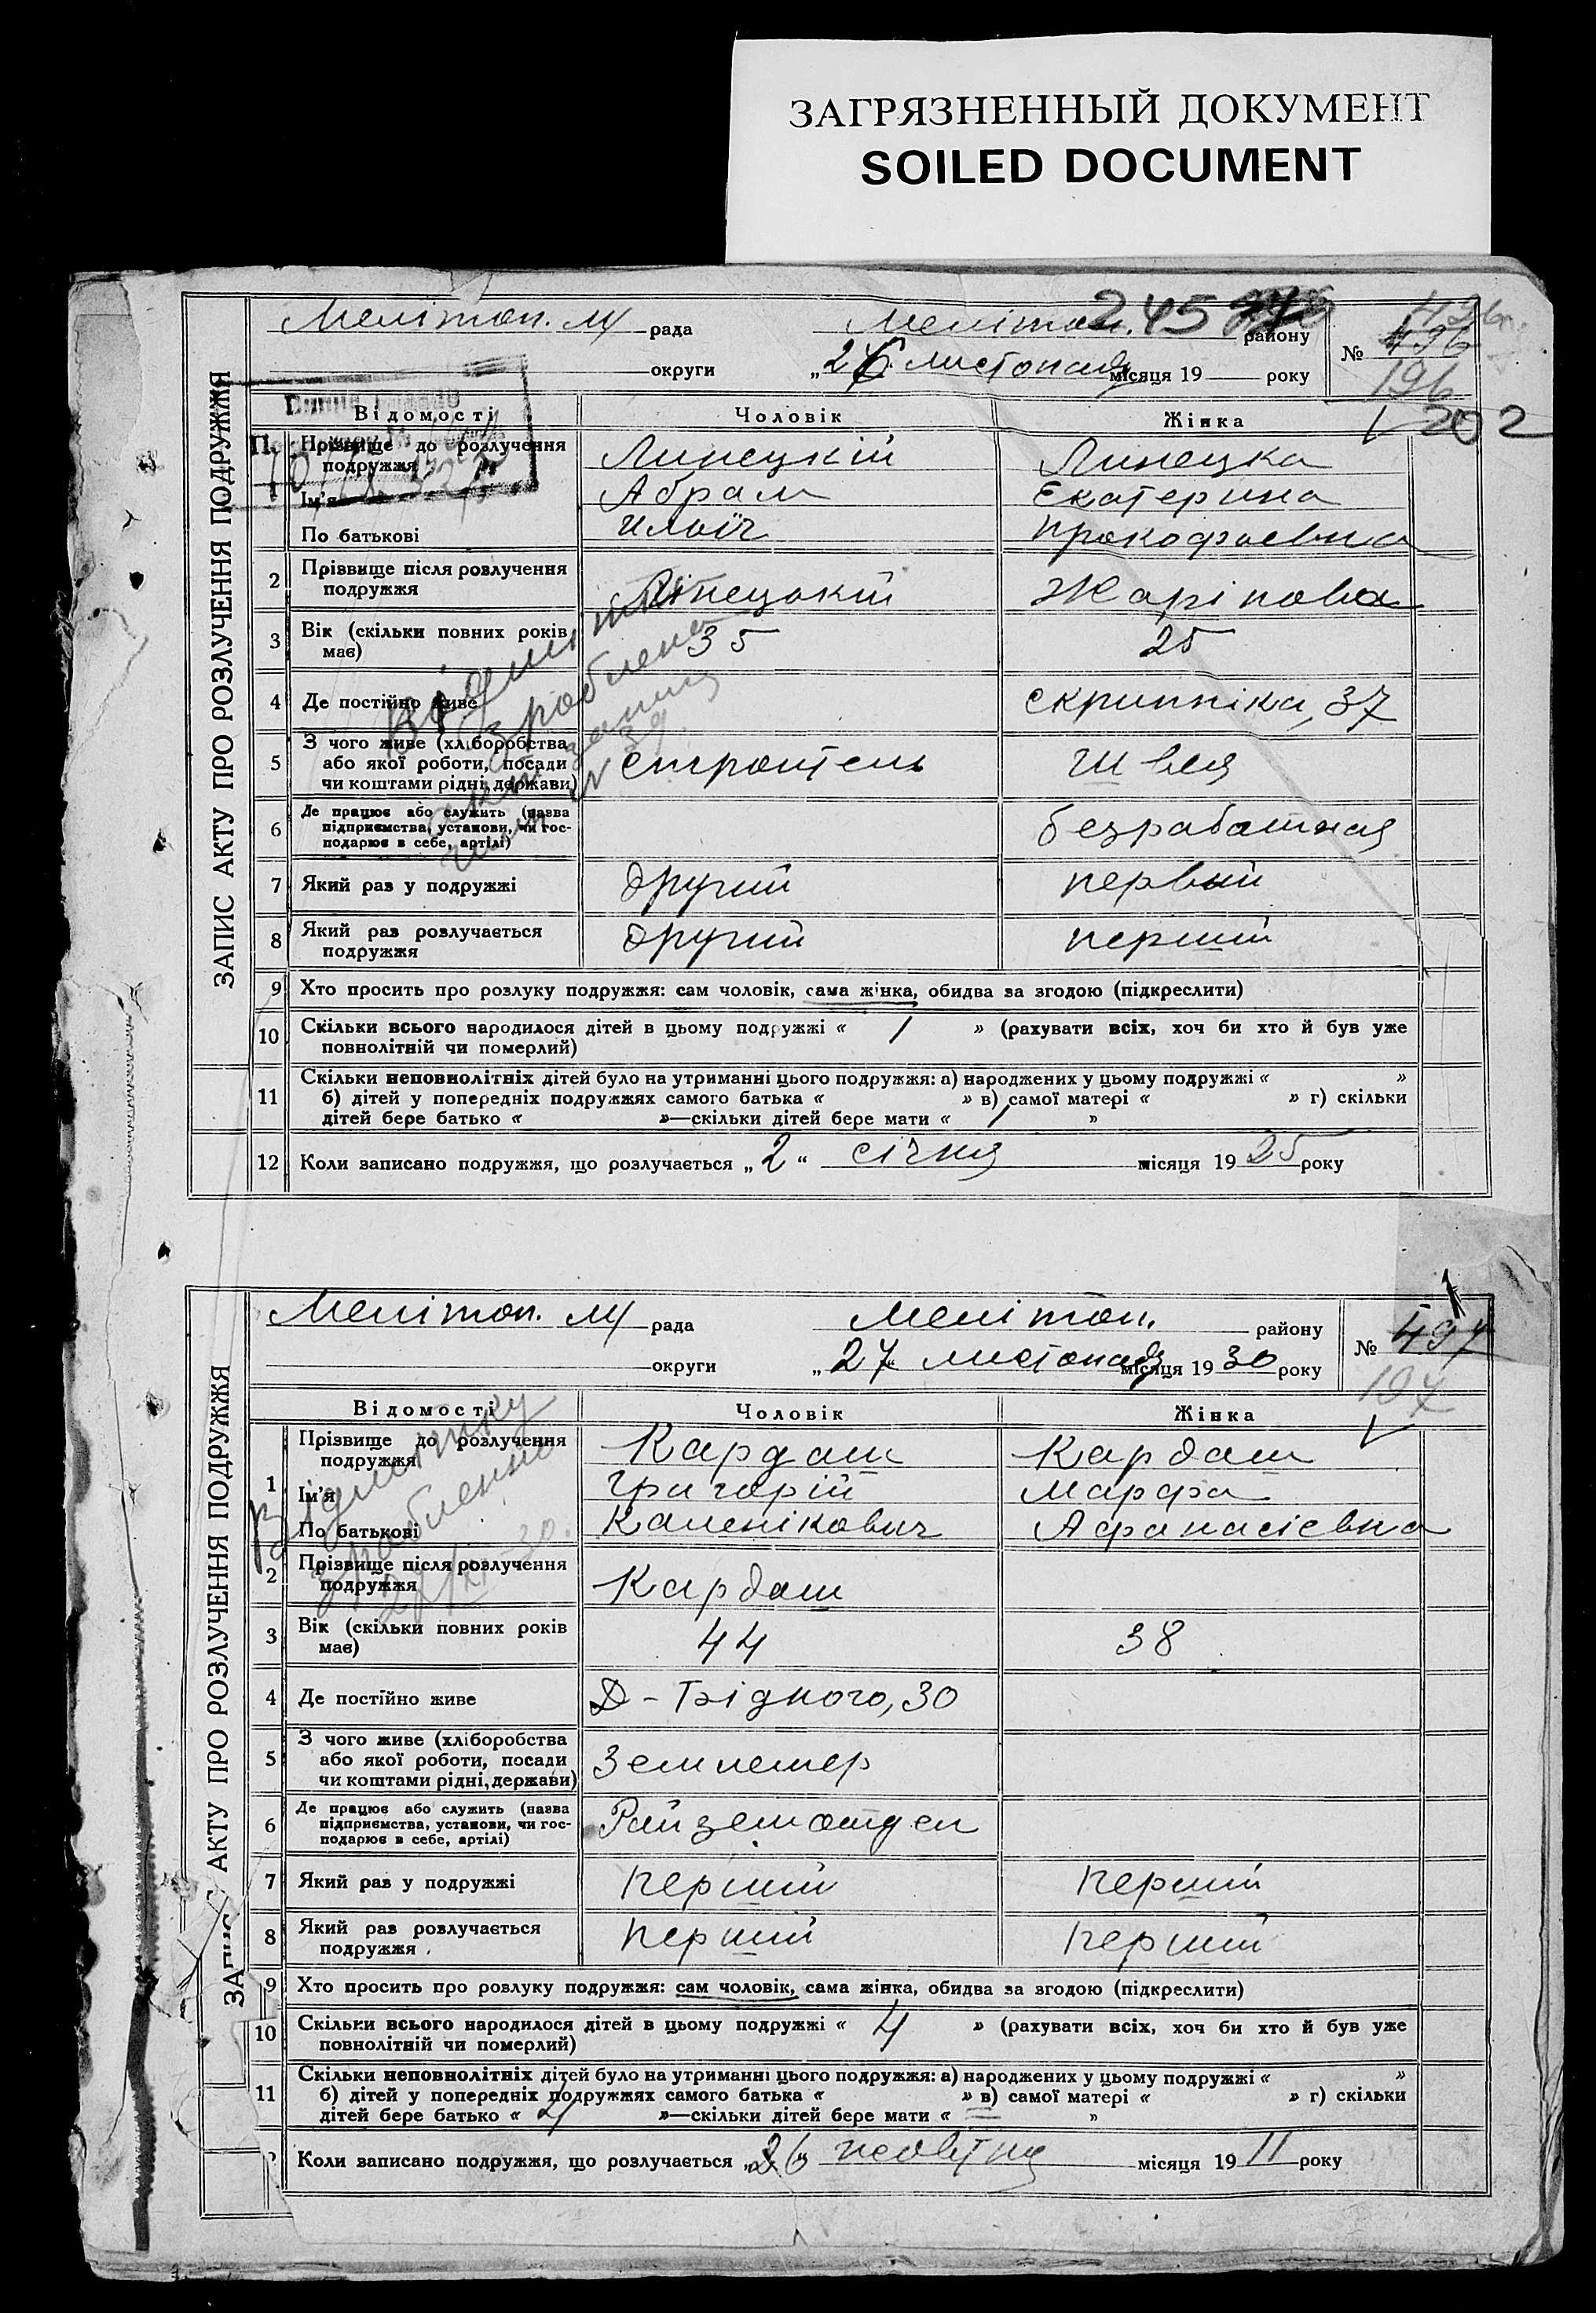 ЗАГРЯЗНЕННЫЙ ДОКУМЕНТ
SOILED DOCUMENT
ЗАПИС АКТУ ПРО РОЗЛУЧЕННЯ ПОДРУЖЖЯ
245
Мелітоп. м/ рада Мелітоп. району
округи „26“ листопада місяця 19 року
№ 496
196
202
Відомості Чоловік Жінка
Прізвище до розлучення подружжя Липецкій Липецка
Ім'я Абрам Екатерина
По батькові Ильїч Прокофьевна
2 Прізвище після розлучення подружжя Ліпецький Жарікова
3 Вік (скільки повних років має) 35 25
4 Де постійно живе Скрипніка, 37
5 З чого живе (хліборобства або якої роботи, посади чи коштами рідні, держави) строитель швея
6 Де працює або служить (назва підприємства, установи, чи господарює в себе, артілі) безработная
7 Який раз у подружжі другий первый
8 Який раз розлучається подружжя другий перший
9 Хто просить про розлуку подружжя: сам чоловік, сама жінка, обидва за згодою (підкреслити)
10 Скільки всього народилося дітей в цьому подружжі « 1 » (рахувати всіх, хоч би хто й був уже
повнолітній чи померлий)
11 Скільки неповнолітніх дітей було на утриманні цього подружжя: а) народжених у цьому подружжі « »
б) дітей у попередніх подружжях самого батька « » в) самої матері « » г) скільки
дітей бере батько « »—скільки дітей бере мати « 1 »
12 Коли записано подружжя, що розлучається „2“ січня місяця 1925 року
Відмітка
зроблена
ЗАПИС АКТУ ПРО РОЗЛУЧЕННЯ ПОДРУЖЖЯ
Мелітоп. м/ рада Мелітоп. району
округи „27“ листопада місяця 1930 року
№ 497
197
Відомості Чоловік Жінка
1 Прізвище до розлучення подружжя Кардаш Кардаш
Ім'я Григорій Марфа
По батькові Каленікович Афанасієвна
2 Прізвище після розлучення подружжя Кардаш
3 Вік (скільки повних років має) 44 38
4 Де постійно живе Д-Бідного, 30
5 З чого живе (хліборобства або якої роботи, посади чи коштами рідні, держави) Землемер
6 Де працює або служить (назва підприємства, установи, чи господарює в себе, артілі) Райземотдел
7 Який раз у подружжі перший перший
8 Який раз розлучається подружжя перший перший
9 Хто просить про розлуку подружжя: сам чоловік, сама жінка, обидва за згодою (підкреслити)
10 Скільки всього народилося дітей в цьому подружжі « 4 » (рахувати всіх, хоч би хто й був уже
повнолітній чи померлий)
11 Скільки неповнолітніх дітей було на утриманні цього подружжя: а) народжених у цьому подружжі « »
б) дітей у попередніх подружжях самого батька « » в) самої матері « » г) скільки
дітей бере батько « »—скільки дітей бере мати « »
Коли записано подружжя, що розлучається „26“ місяця 1911 року
Відмітку
зробленно